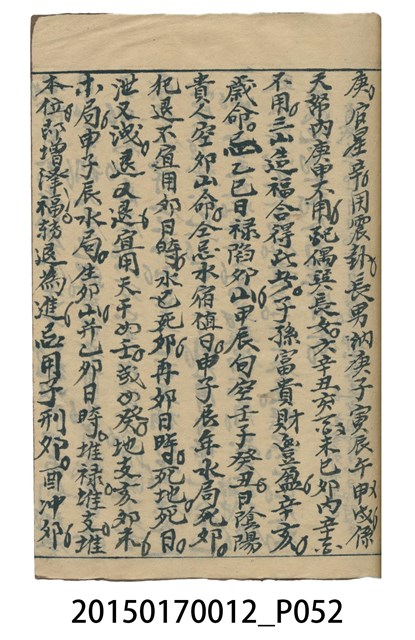 庚官星辛用震卦長男納庚子寅辰午申戌係
天帑內庚申不用配偶巽長女方辛丑亥酉未巳卯內辛亥
不用三山造福合得此共子孫富貴財豊盈辛亥
歲命忌乙巳日禄陷卯山甲辰旬空壬子癸丑日陰陽
貴人空卯山命全忌水宿值日申子辰年水局死卯
犯退不宜用卯日時水已死卯再卯日時死地死日
泄又洩退又退宜用天干如壬或如癸地支亥卯未
木局申子辰水局生卯山并乙卯日時堆禄堆支堆
本位即增洚福轉退為進忌用子刑卯酉冲卯
20150170012_P052